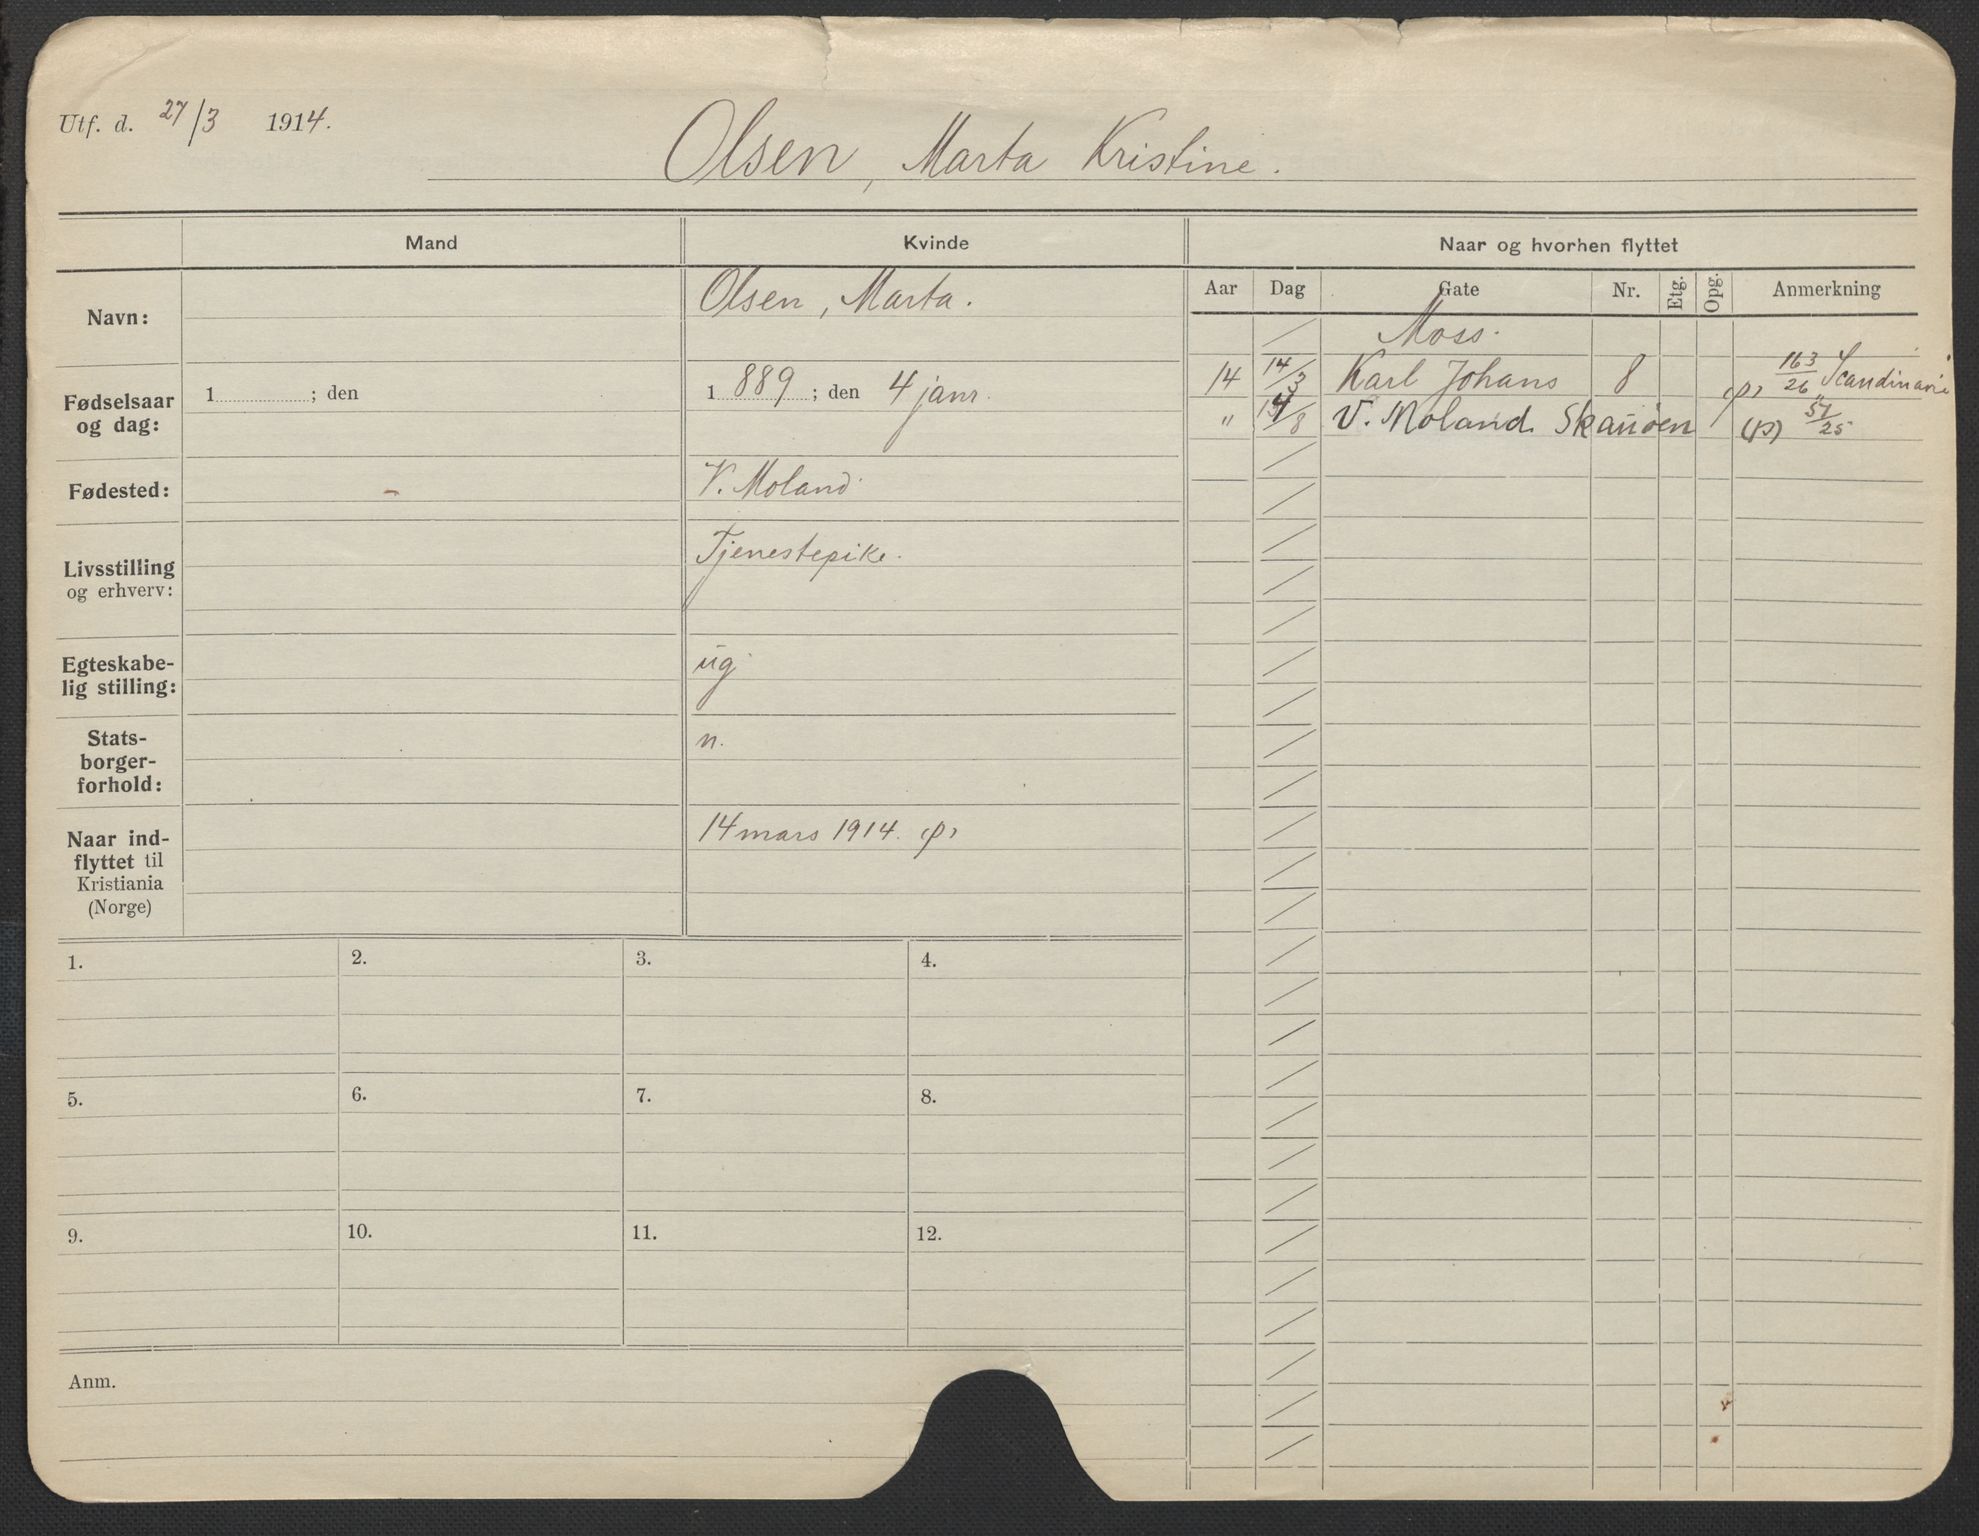 Utf. d. 27/3 1914.
Olsen, Marta Kristine.
Mand
Kvinde
Naar og hvorhen flyttet
Navn:
Olsen, Marta.
Fødselsaar
og dag:
1 ; den
1 889 ; den 4 janr.
Fødested:
V. Moland
Livsstilling
og erhverv:
Tjenestepike.
Egteskabe-
lig stilling:
ug
Stats-
borger-
forhold:
n.
Naar ind-
flyttet til
Kristiania
(Norge)
14 mars 1914. (p)
Aar Dag Gate Nr. Etg. Opg. Anmerkning
Moss.
14 14/3 Karl Johans 8 (p) 163/26 Scandinavie
" /8 V. Moland (p) 51/25
1.
2.
3.
4.
5.
6.
7.
8.
9.
10.
11.
12.
Anm.